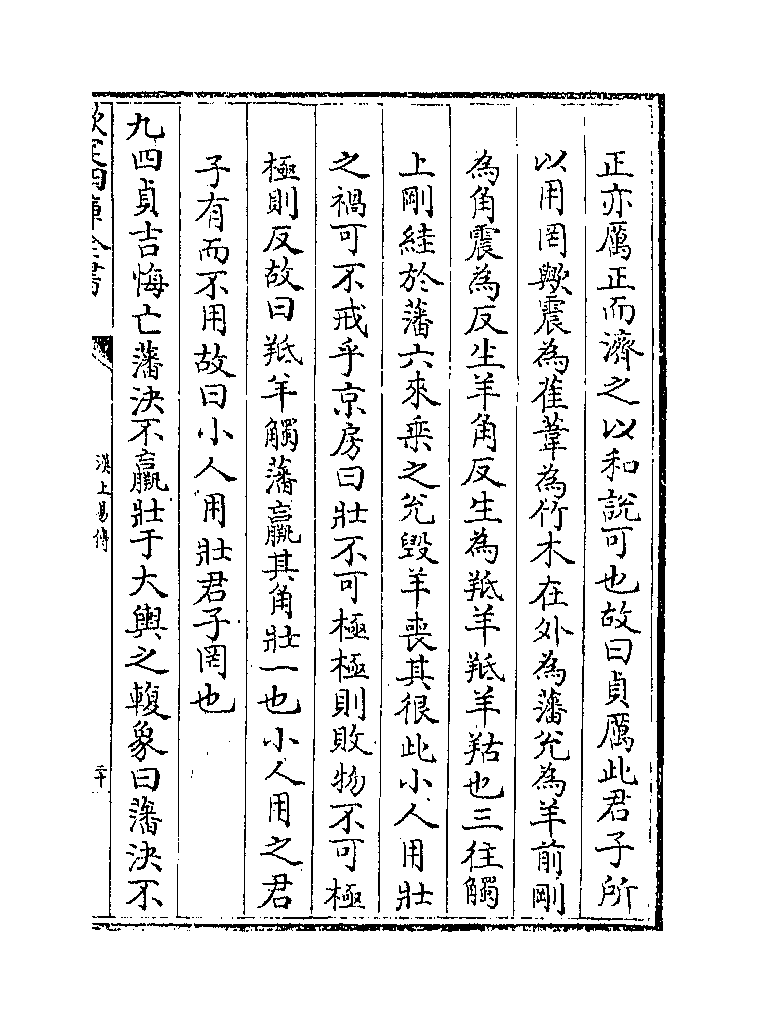 正亦厲正而濟之以和說可也故曰貞厲此君子所
以用罔歟震為萑葦為竹木在外為藩兌為羊前剛
為角震為反生羊角反生為羝羊羝羊羖也三往觸
上剛絓於藩六來乗之兌毀羊喪其很此小人用壯
之禍可不戒乎京房曰壯不可極極則敗物不可極
極則反故曰羝羊觸藩羸其角壯一也小人用之君
子有而不用故曰小人用壯君子罔也
九四貞吉悔亡藩決不羸壯于大輿之輹象曰藩決不
欽定四庫全書
漢上易傳
二十